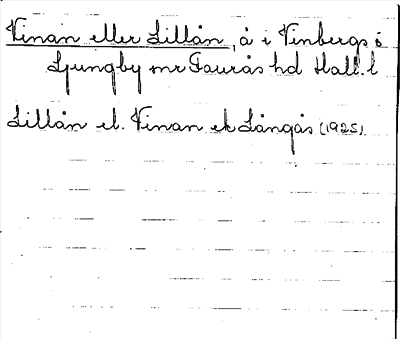 Vinån eller Lillån, å i Vinbergs ö
Ljungby snr Faurås hd Hall. l
Lillån el. Vinan ek Långås (1925).